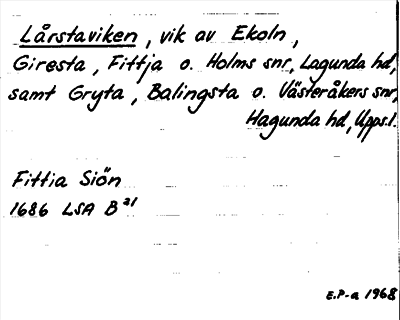 Lårstaviken, vik av Ekoln,
Giresta, Fittja o. Holms snr, Lagunda hd,
samt Gryta, Balingsta o. Västeråkers snr,
Hagunda hd, Upps.l.
Fittia Siön
1686 LSA B²¹
E.P-a 1968